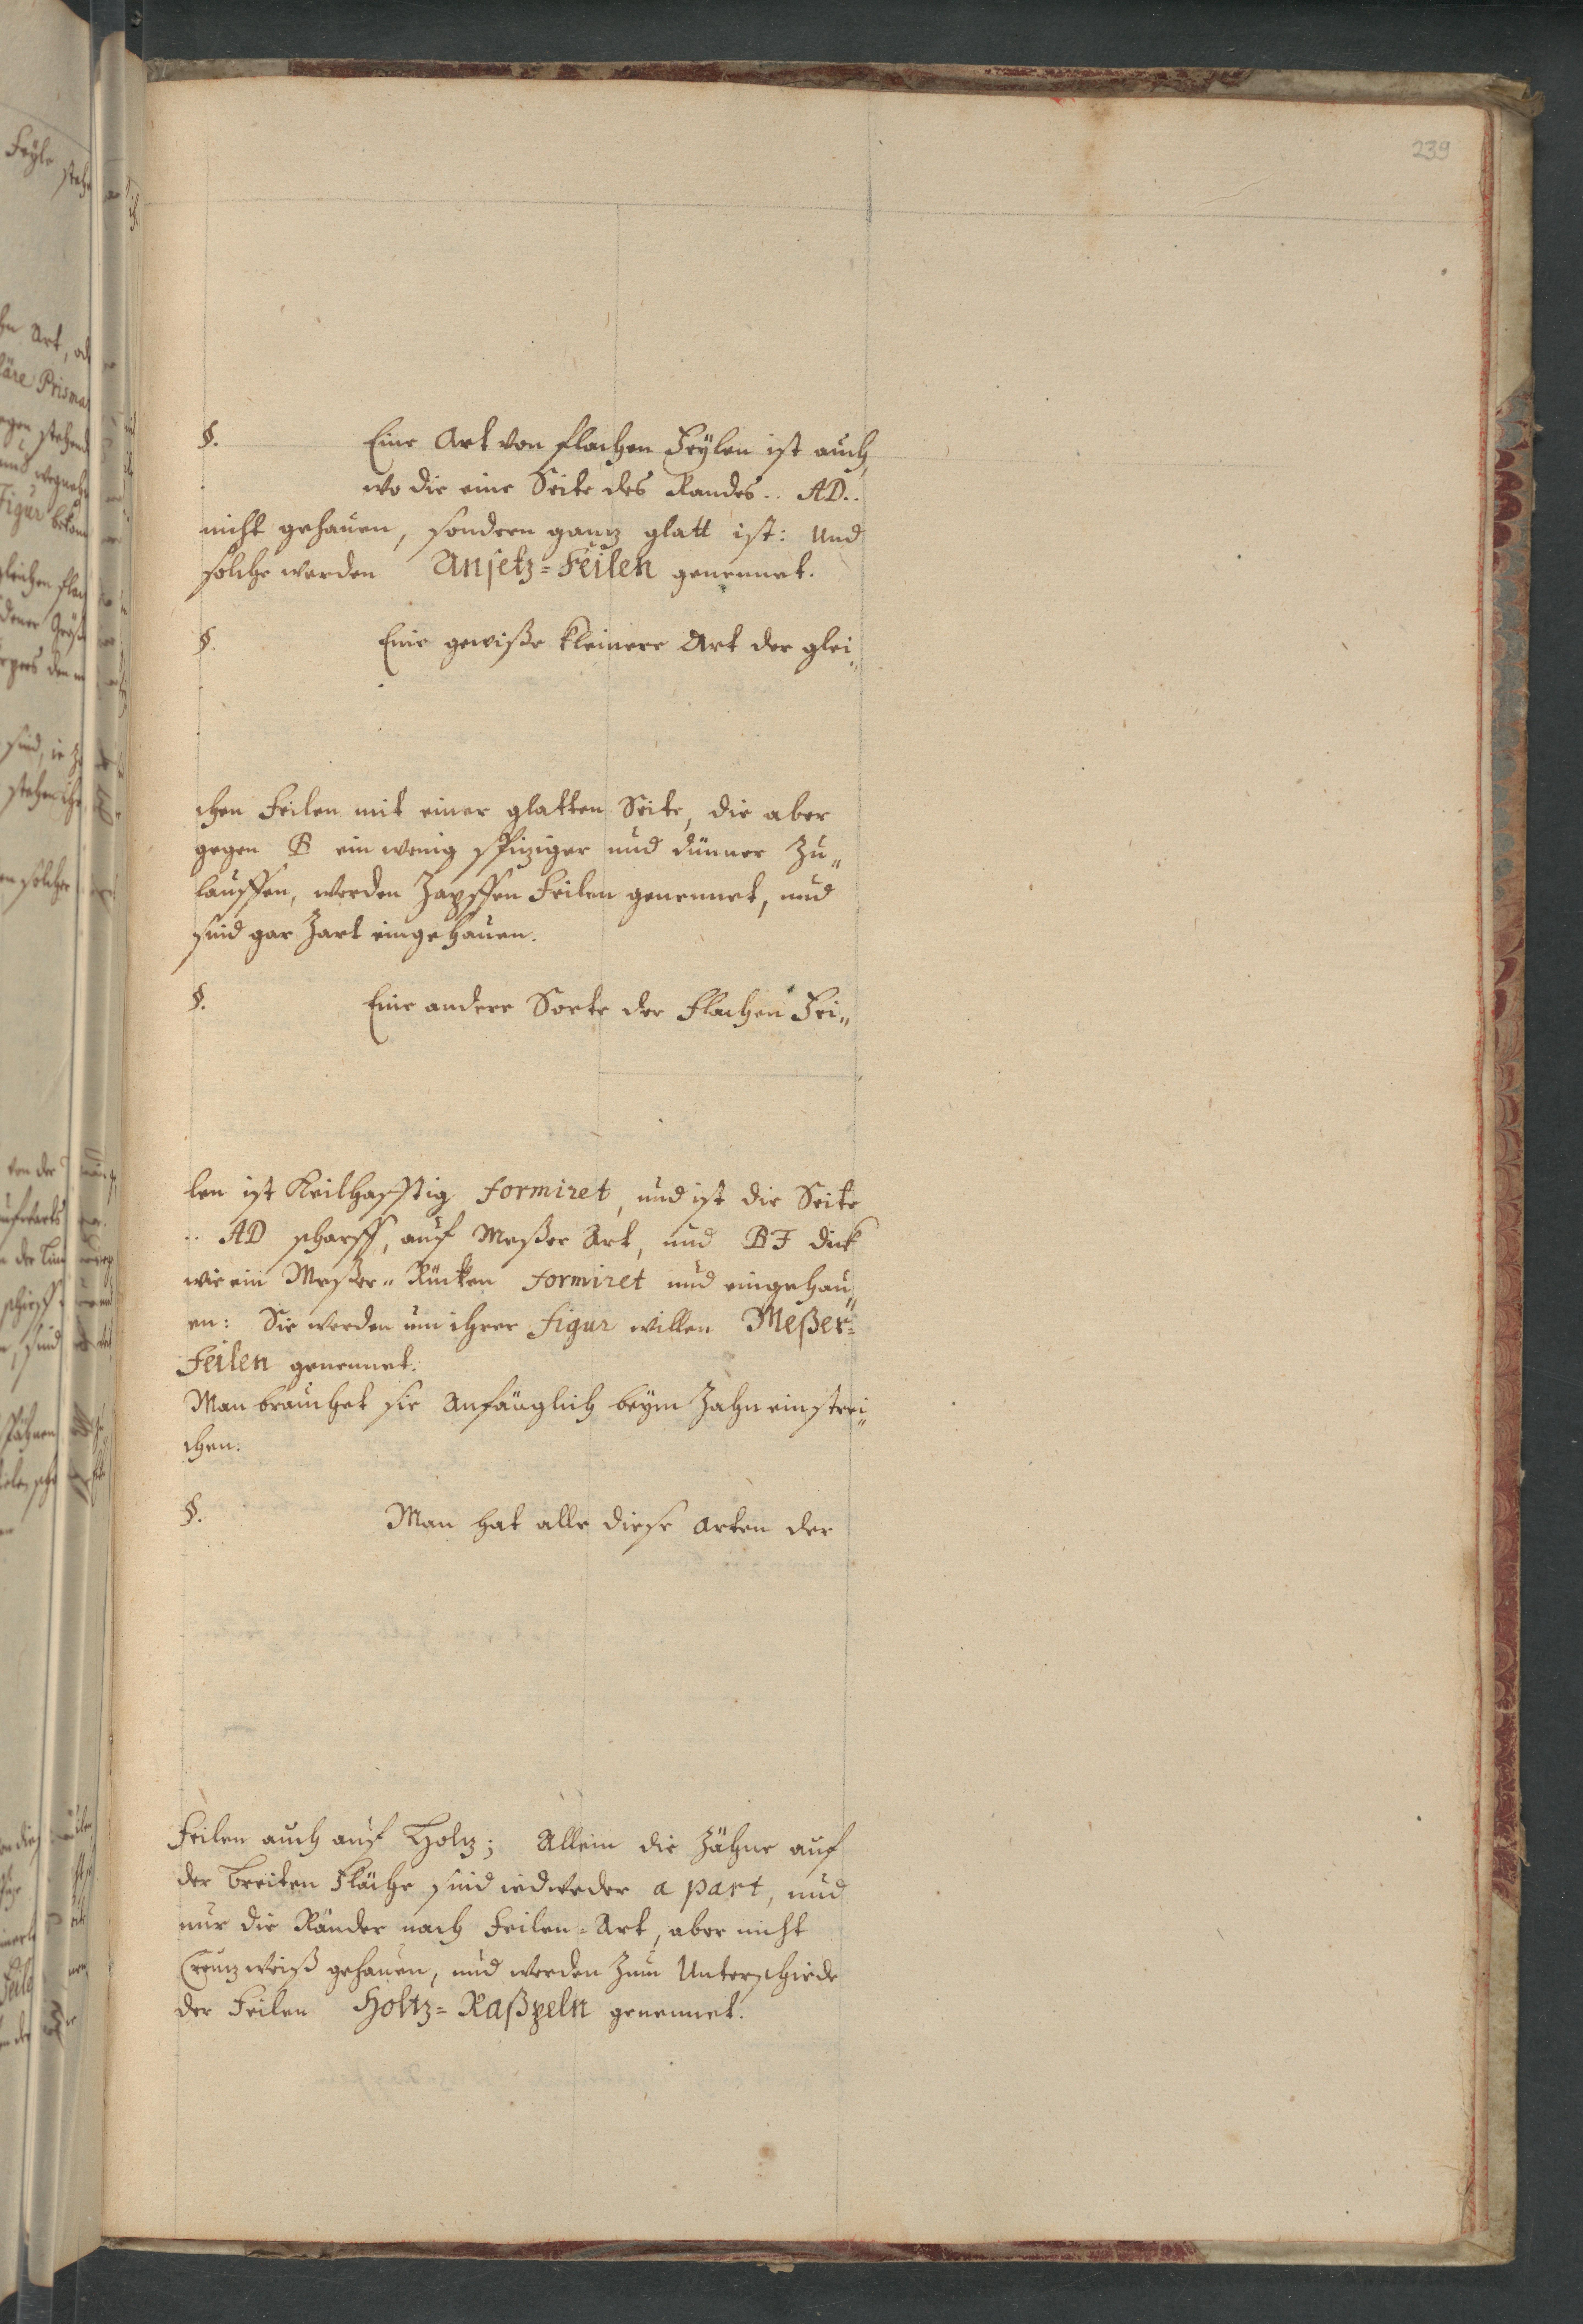 239
§. Eine Art von flachen Feÿlen ist auch,
wo die eine Seite des Randes .. AD..
nicht gehauen, sondern ganz glatt ist: Und
solche werden Ansetz=Feilen genennet.
§. Eine gewiße kleinere Art der glei„
chen Feilen mit einer glatten Seite, die aber
gegen B ein wenig spiziger und dünner zu„
lauffen, werden Zapffen Feilen genennet, und
sind gar zart eingehauen.
§. Eine andere Sorte der flachen Fei„
len ist Keilhafftig formiret, und ist die Seite
.. AD scharff, auf Meßer Art, und BF dick
wie ein Meßer„ Rücken formiret und eingehau„
en: Sie werden um ihrer figur willen Meßer=
Feilen genennet.
Man brauchet sie Anfänglich beÿm Zahn einstrei„
chen.
§. Man hat alle diese Arten der
Feilen auch auf Holz; Allein die Zähne auf
der breiten Fläche sind iedweder a part, und
nur die Ränder nach Feilen=Art, aber nicht
Creuzweiß gehauen, und werden zum Unterschiede
der Feilen Holtz=Raßpeln genennet.